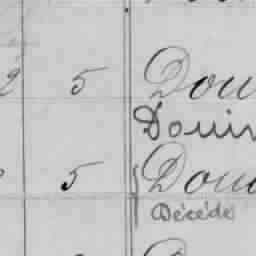 2 5 Dou
Douin
5 Dou
Décédé